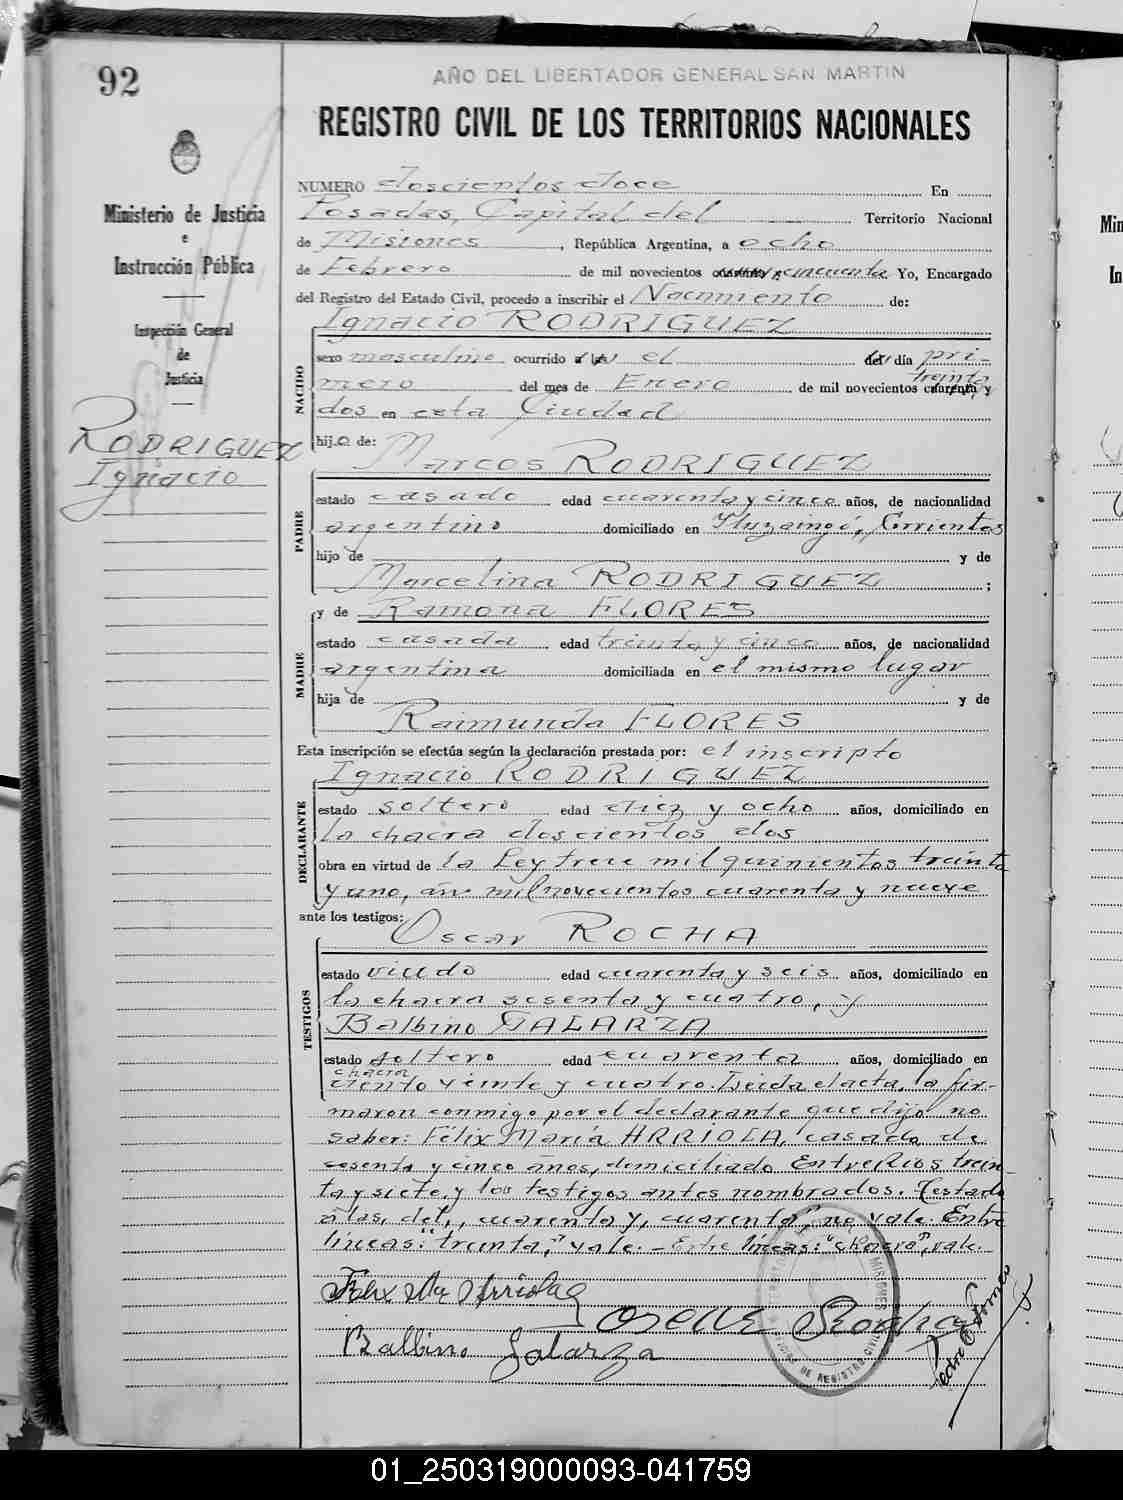 92
AÑO DEL LIBERTADOR GENERAL SAN MARTIN
REGISTRO CIVIL DE LOS TERRITORIOS NACIONALES
Ministerio de Justicia
e
Instrucción Pública
Inspección General
de
Justicia
RODRIGUEZ
Ignacio
NUMERO doscientos doce En
Posadas, Capital del Territorio Nacional
de Misiones, República Argentina, a ocho
de Febrero de mil novecientos cincuenta Yo, Encargado
del Registro del Estado Civil, procedo a inscribir el Nacimiento de:
Ignacio RODRIGUEZ
NACIDO
sexo masculino ocurrido a las el del día pri-
mero del mes de Enero de mil novecientos cuarenta y treinta
dos en esta Ciudad
hijo de:
Marcos RODRIGUEZ
PADRE
estado casado edad cuarenta y cinco años, de nacionalidad
argentino domiciliado en Ituzaingó, Corrientes
hijo de y de
Marcelina RODRIGUEZ ;
y de Ramona FLORES
MADRE
estado casada edad treinta y cinco años, de nacionalidad
argentina domiciliada en el mismo lugar
hija de y de
Raimunda FLORES
Esta inscripción se efectúa según la declaración prestada por: el inscripto
Ignacio RODRIGUEZ
DECLARANTE
estado soltero edad diez y ocho años, domiciliado en
la chacra doscientos dos
obra en virtud de la Ley trece mil quinientos treinta
y uno, año mil novecientos cuarenta y nueve
ante los testigos:
Oscar ROCHA
TESTIGOS
estado viudo edad cuarenta y seis años, domiciliado en
la chacra sesenta y cuatro, y
Balbino GALARZA
estado soltero edad cuarenta años, domiciliado en
chacra
ciento veinte y cuatro. Leida el acta, la fir-
maron conmigo por el declarante que dijo no
saber: Félix María ARRIOLA, casado de
sesenta y cinco años, domiciliado Entre Rios trein-
ta y siete, y los testigos antes nombrados. Testado
a las, del, cuarenta y, cuarenta", no vale. Entre
líneas: "treinta," vale. - Entre líneas: "chacra", vale.
Felix Ma Arriola
Oscar Rocha
Balbino Galarza
DE REGISTRO CIVIL
MISIONES
01_250319000093-041759